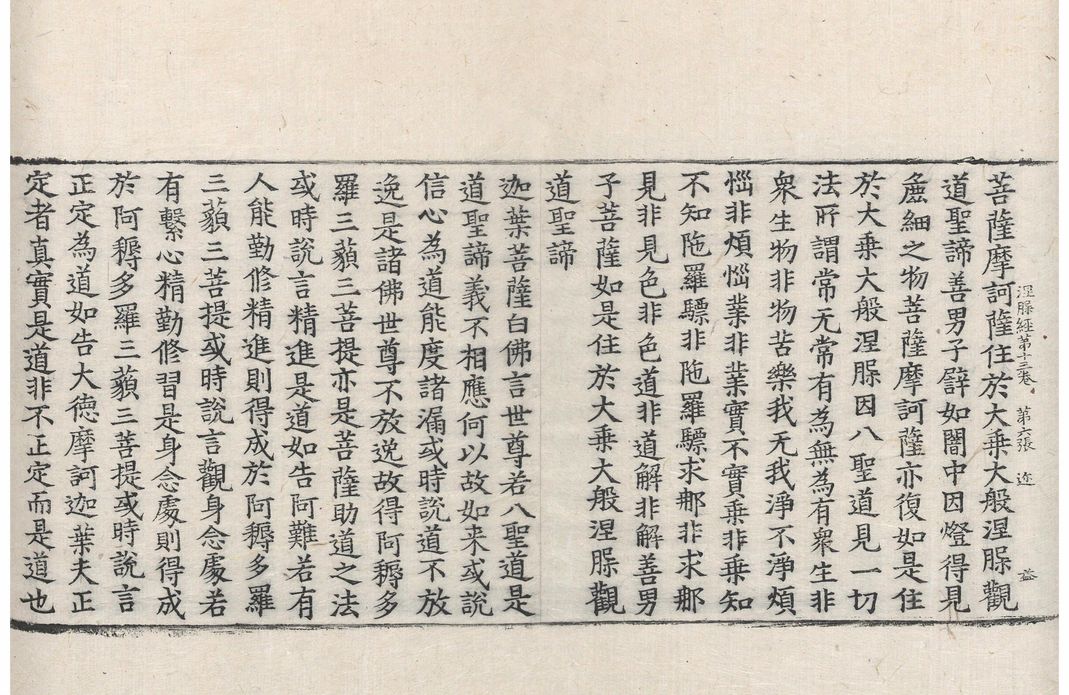 涅槃經第十三卷 第六張 迹 益
菩薩摩訶薩住於大乘大般涅槃觀
道聖諦善男子譬如闇中因燈得見
麁細之物菩薩摩訶薩亦復如是住
於大乘大般涅槃因八聖道見一切
法所謂常无常有為無為有衆生非
衆生物非物苦樂我无我淨不淨煩
惱非煩惱業非業實不實乘非乘知
不知陁羅驃非陁羅驃求那非求那
見非見色非色道非道解非解善男
子菩薩如是住於大乘大般涅槃觀
道聖諦
迦葉菩薩白佛言世尊若八聖道是
道聖諦義不相應何以故如来或說
信心為道能度諸漏或時說道不放
逸是諸佛世尊不放逸故得阿耨多
羅三藐三菩提亦是菩薩助道之法
或時說言精進是道如告阿難若有
人能勤修精進則得成於阿耨多羅
三藐三菩提或時說言觀身念處若
有繫心精勤修習是身念處則得成
於阿耨多羅三藐三菩提或時說言
正定為道如告大德摩訶迦葉夫正
定者真實是道非不正定而是道也